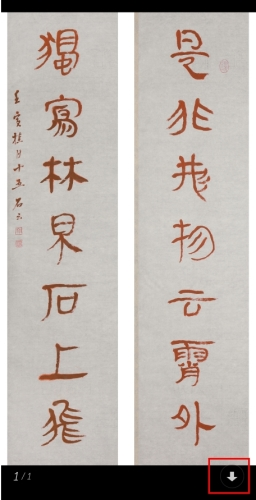 是非我物云霄外
獨寫林泉石上飛
壬寅桂月十五石云
1/1